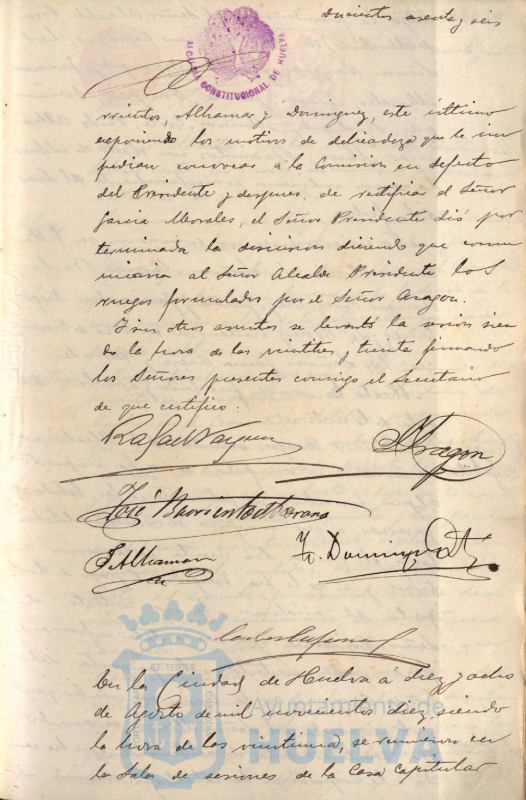 Doscientos sesenta y seis
ALCALDIA CONSTITUCIONAL DE HUELVA
rrientos, Alhamar y Dominguez, este último
exponiendo los motivos de delicadeza que le im
pedian convocar á la Comision en defecto
del Presidente y despues de rectificar el Señor
Garcia Morales, el Señor Presidente dió por
terminada la discusion diciendo que comu
nicaria al Señor Alcalde Presidente los
ruegos formulados por el Señor Aragon.
Y sin otros asuntos se levantó la sesion sien
do la hora de las veintitres y treinta firmando
los Señores presentes conmigo el Secretario
de que certifico.
Rafael Vazquez
Aragon
José Barrientos
J. Alhamar
F. Dominguez
AT TERRAE
En la Ciudad de Huelva á diez y ocho
de Agosto de mil novecientos diez, siendo
Ayuntamiento de
la hora de las veintiuna, se reunieron en
HUELVA
la Sala de sesiones de la Casa Capitular